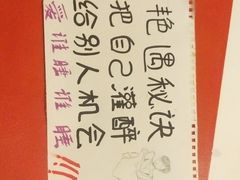 艳遇秘诀
把自己灌醉
给别人机会
爱谁睡谁睡!!!